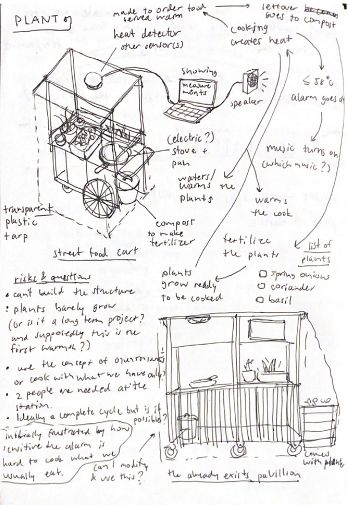 PLANT OF
made to order food
served warm
heat detector
other sensor(s)
leftover
goes to compost
cooking
creates heat
showing
measure
ments
speaker
≤ 50°C
alarm goes
music turns on
(which music?)
(electric?)
stove +
pan
waters/
warms the
plants
warms
the cook
transparent
plastic
tarp
compost
to make
fertilizer
street food cart
fertilize
the plants
list of
plants
spring onions
coriander
basil
plants
grow ready
to be cooked
risks & questions
• can't build the structure
• plants barely grow
(or is it a long term project?
and supposedly this is the
first warmth?)
• use the concept of
or cook with what we have only?
• 2 people are needed at the
station.
• Ideally a complete cycle but is it
possible?
frustrated by how
sensitive the alarm is
hard to cook what we
usually eat.
can I modify
& use this?
the already exists pavillion
comes with